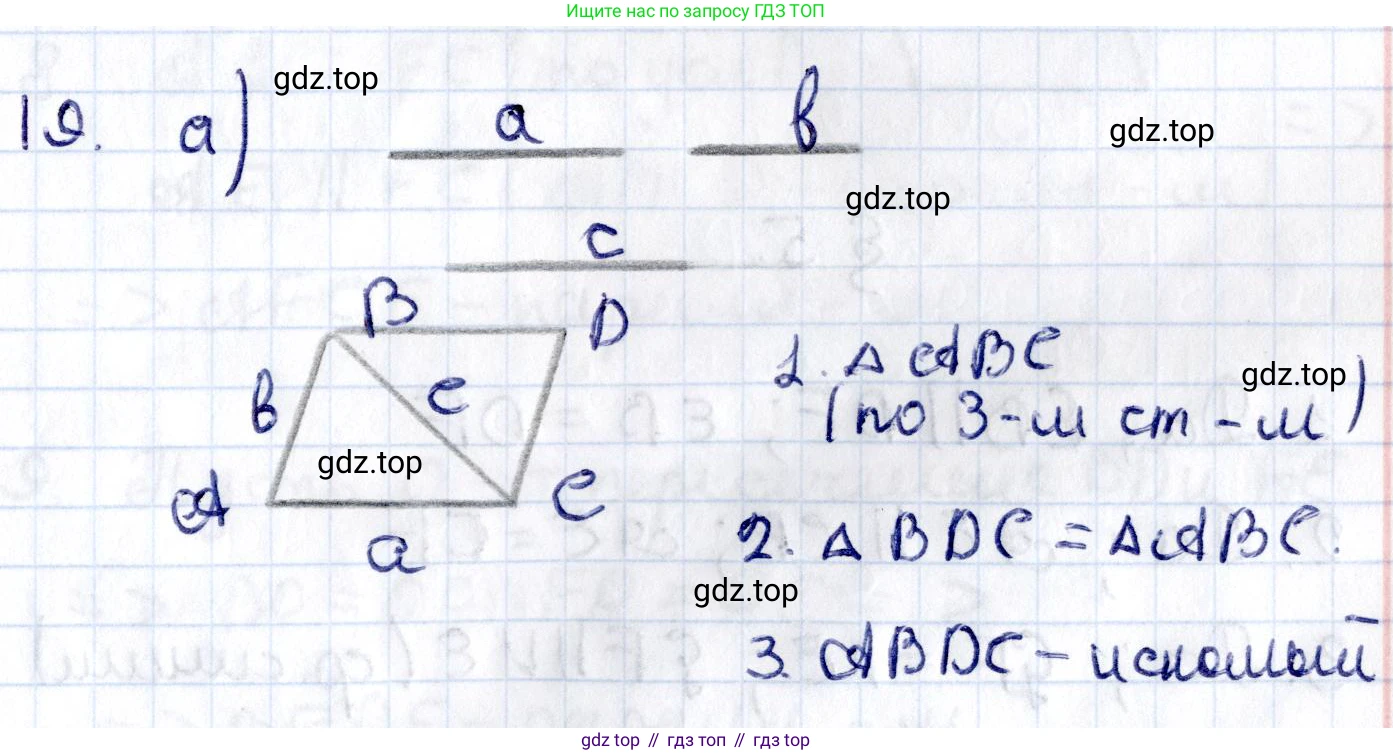 Ищите нас по запросу ГДЗ ТОП
gdz.top
19. а)
a
в
gdz.top
gdz.top
c
B
D
в
c
gdz.top
A
C
a
1. △ ABC
(по 3-м ст-м)
gdz.top
2. △ BDC = △ABC.
gdz.top
3. ABDC - искомый
gdz top // гдз топ // гдз top